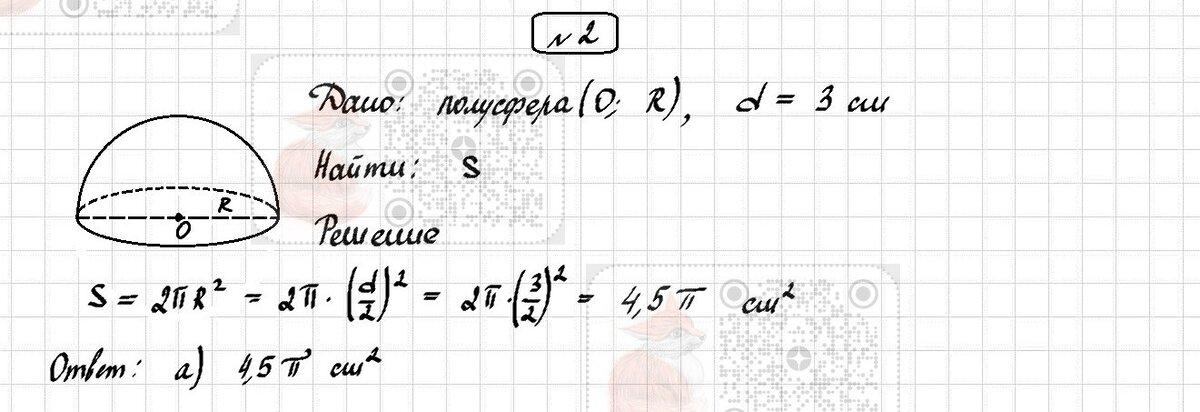 №2
Дано: полусфера (O; R), d = 3 см
Найти: S
R
O
Решение
S = 2πR² = 2π · (d/2)² = 2π · (3/2)² = 4,5π см²
Ответ: а) 4,5π см²